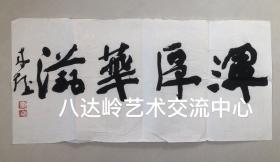 渾厚華滋
八达岭艺术交流中心